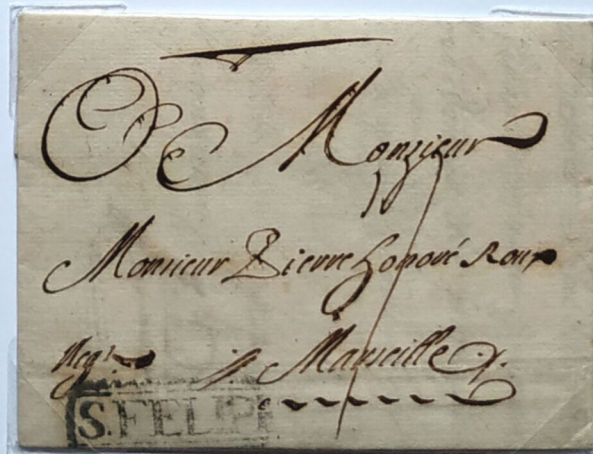 A Monsieur
Monsieur Pierre Honoré Roux
Negt. à Marseille
S.FELIP